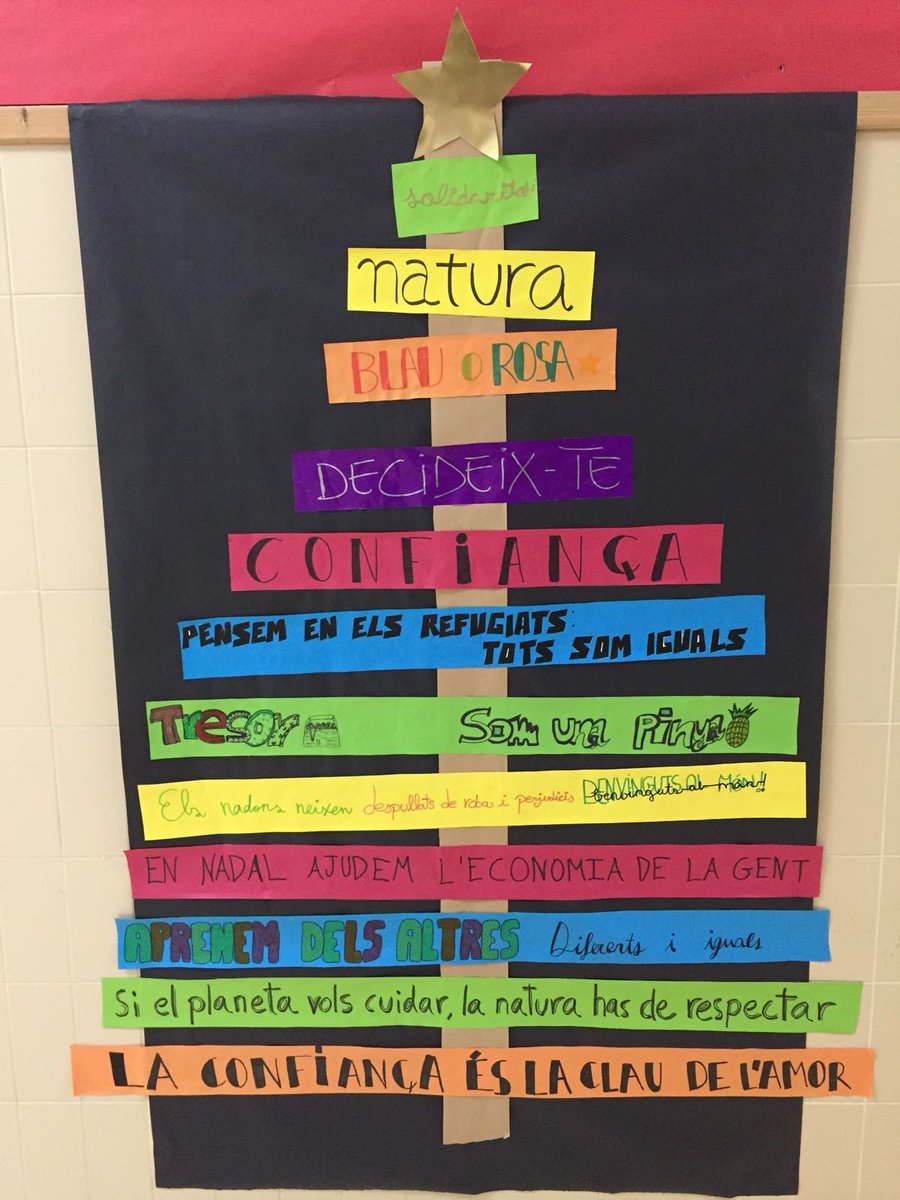 solidaritat
natura
BLAU o ROSA
DECiDEiX-TE
CONFiANÇA
PENSEM EN ELS REFUGIATS:
TOTS SOM IGUALS
Tresor Som una Pinya
Els nadons neixen despullats de roba i perjudicis BENVINGUTS AL MÓN!!
EN NADAL AJUDEM L'ECONOMIA DE LA GENT
APRENEM DELS ALTRES Diferents i iguals
Si el planeta vols cuidar, la natura has de respectar
LA CONFiANÇA ÉS LA CLAU DE L'AMOR